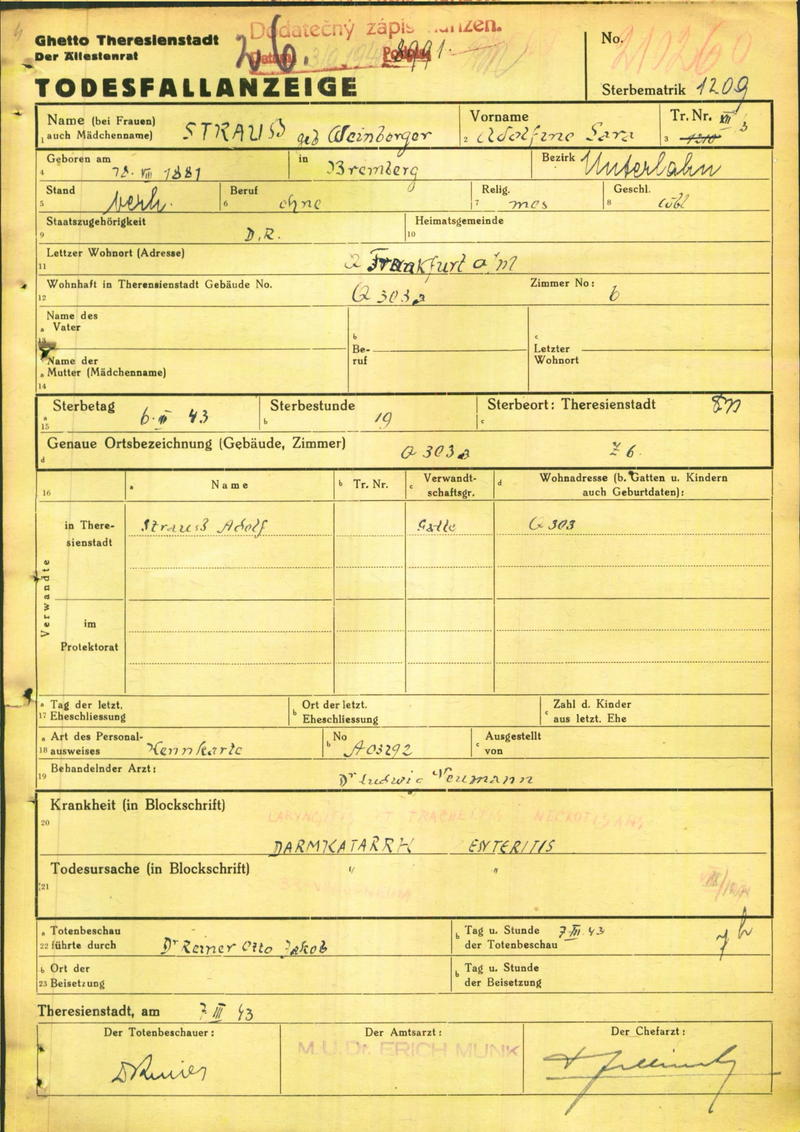 Dodatečný zápis nařízen.
Ghetto Theresienstadt
Der Ältestenrat
8991.
No.
TODESFALLANZEIGE
Sterbematrik 1209
Name (bei Frauen) STRAUSS geb Weinberger
1 auch Mädchenname)
Vorname
2 Adolfine Sara
Tr. Nr.
3
Geboren am
4 1881
in Bremberg
Bezirk Unterlahn
Stand
5 verh.
Beruf
6 ohne
Relig.
7 mos
Geschl.
8
Staatszugehörigkeit
9 D.R.
Heimatsgemeinde
10
Lettzer Wohnort (Adresse)
11 Frankfurt a/M
Wohnhaft in Theresienstadt Gebäude No.
12 Q 303a
Zimmer No: 6
Name des
a Vater
Name der
a Mutter (Mädchenname)
14
b
Be-
ruf
c
Letzter
Wohnort
Sterbetag
a
15 6. III 43
Sterbestunde
b 19
Sterbeort: Theresienstadt
c
Genaue Ortsbezeichnung (Gebäude, Zimmer)
d Q 303a Z 6.
16
a Name
b Tr. Nr.
c Verwandt-
schaftsgr.
d Wohnadresse (b. Gatten u. Kindern
auch Geburtdaten):
Verwandte
in There-
sienstadt
Strauß Adolf
Gatte
Q 303
im
Protektorat
a Tag der letzt.
17 Eheschliessung
b Ort der letzt.
Eheschliessung
c Zahl d. Kinder
aus letzt. Ehe
a Art des Personal-
18 ausweises Kennkarte
No
b A03292
Ausgestellt
c von
Behandelnder Arzt:
19 Dr Ludwig Neumann
Krankheit (in Blockschrift)
20
LARYNGITIS ET TRACHEITIS NECROTISANS
DARMKATARRH ENTERITIS
Todesursache (in Blockschrift) " "
21
a Totenbeschau
22 führte durch Dr Reiner Otto Jakob
b Tag u. Stunde 7 III 43
der Totenbeschau 7 h
b Ort der
23 Beisetzung
b Tag u. Stunde
der Beisetzung
Theresienstadt, am 7 III 43
Der Totenbeschauer:
Der Amtsarzt:
M.U.Dr. ERICH MUNK
Der Chefarzt: